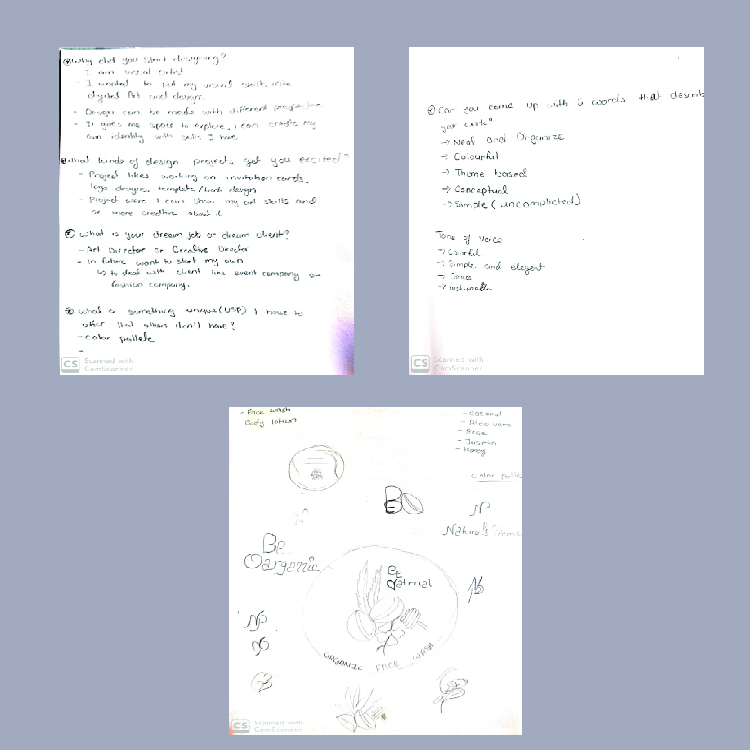 Why did you start designing?
- I am visual artist
- I wanted to put my visual skills into
digital Art and design.
- Design can be made with different perspective.
- It gives me space to explore, I can create my
own identity with skills I have
What kinds of design projects get you excited?
- Project likes working on invitation cards,
logo design, template/book design
- Project were I can show my art skills and
be more creative about it
What is your dream job or dream client?
- Art Director or Creative Director
- In future want to start my own
to deal with client like event company or
fashion company.
What is something unique (USP) I have to
offer that others don't have?
- color pallete
-
CS Scanned with
CamScanner
Can you come up with 5 words that describ
your work?
→ Neat and Organize
→ Colourful
→ Theme based
→ Conceptual
→ Simple (uncomplicted)
Tone of Voice
→ Colorful
→ Simple and elegent
CS Scanned with
CamScanner
- Face wash
Body lotion
- Coconut
- Aloe vera
- Rose
- Jasmin
- Honey
Color
Be
NP
Be
Oarganic
Be
Natural
NP
ORGANIC FACE WASH
CS Scanned with
CamScanner